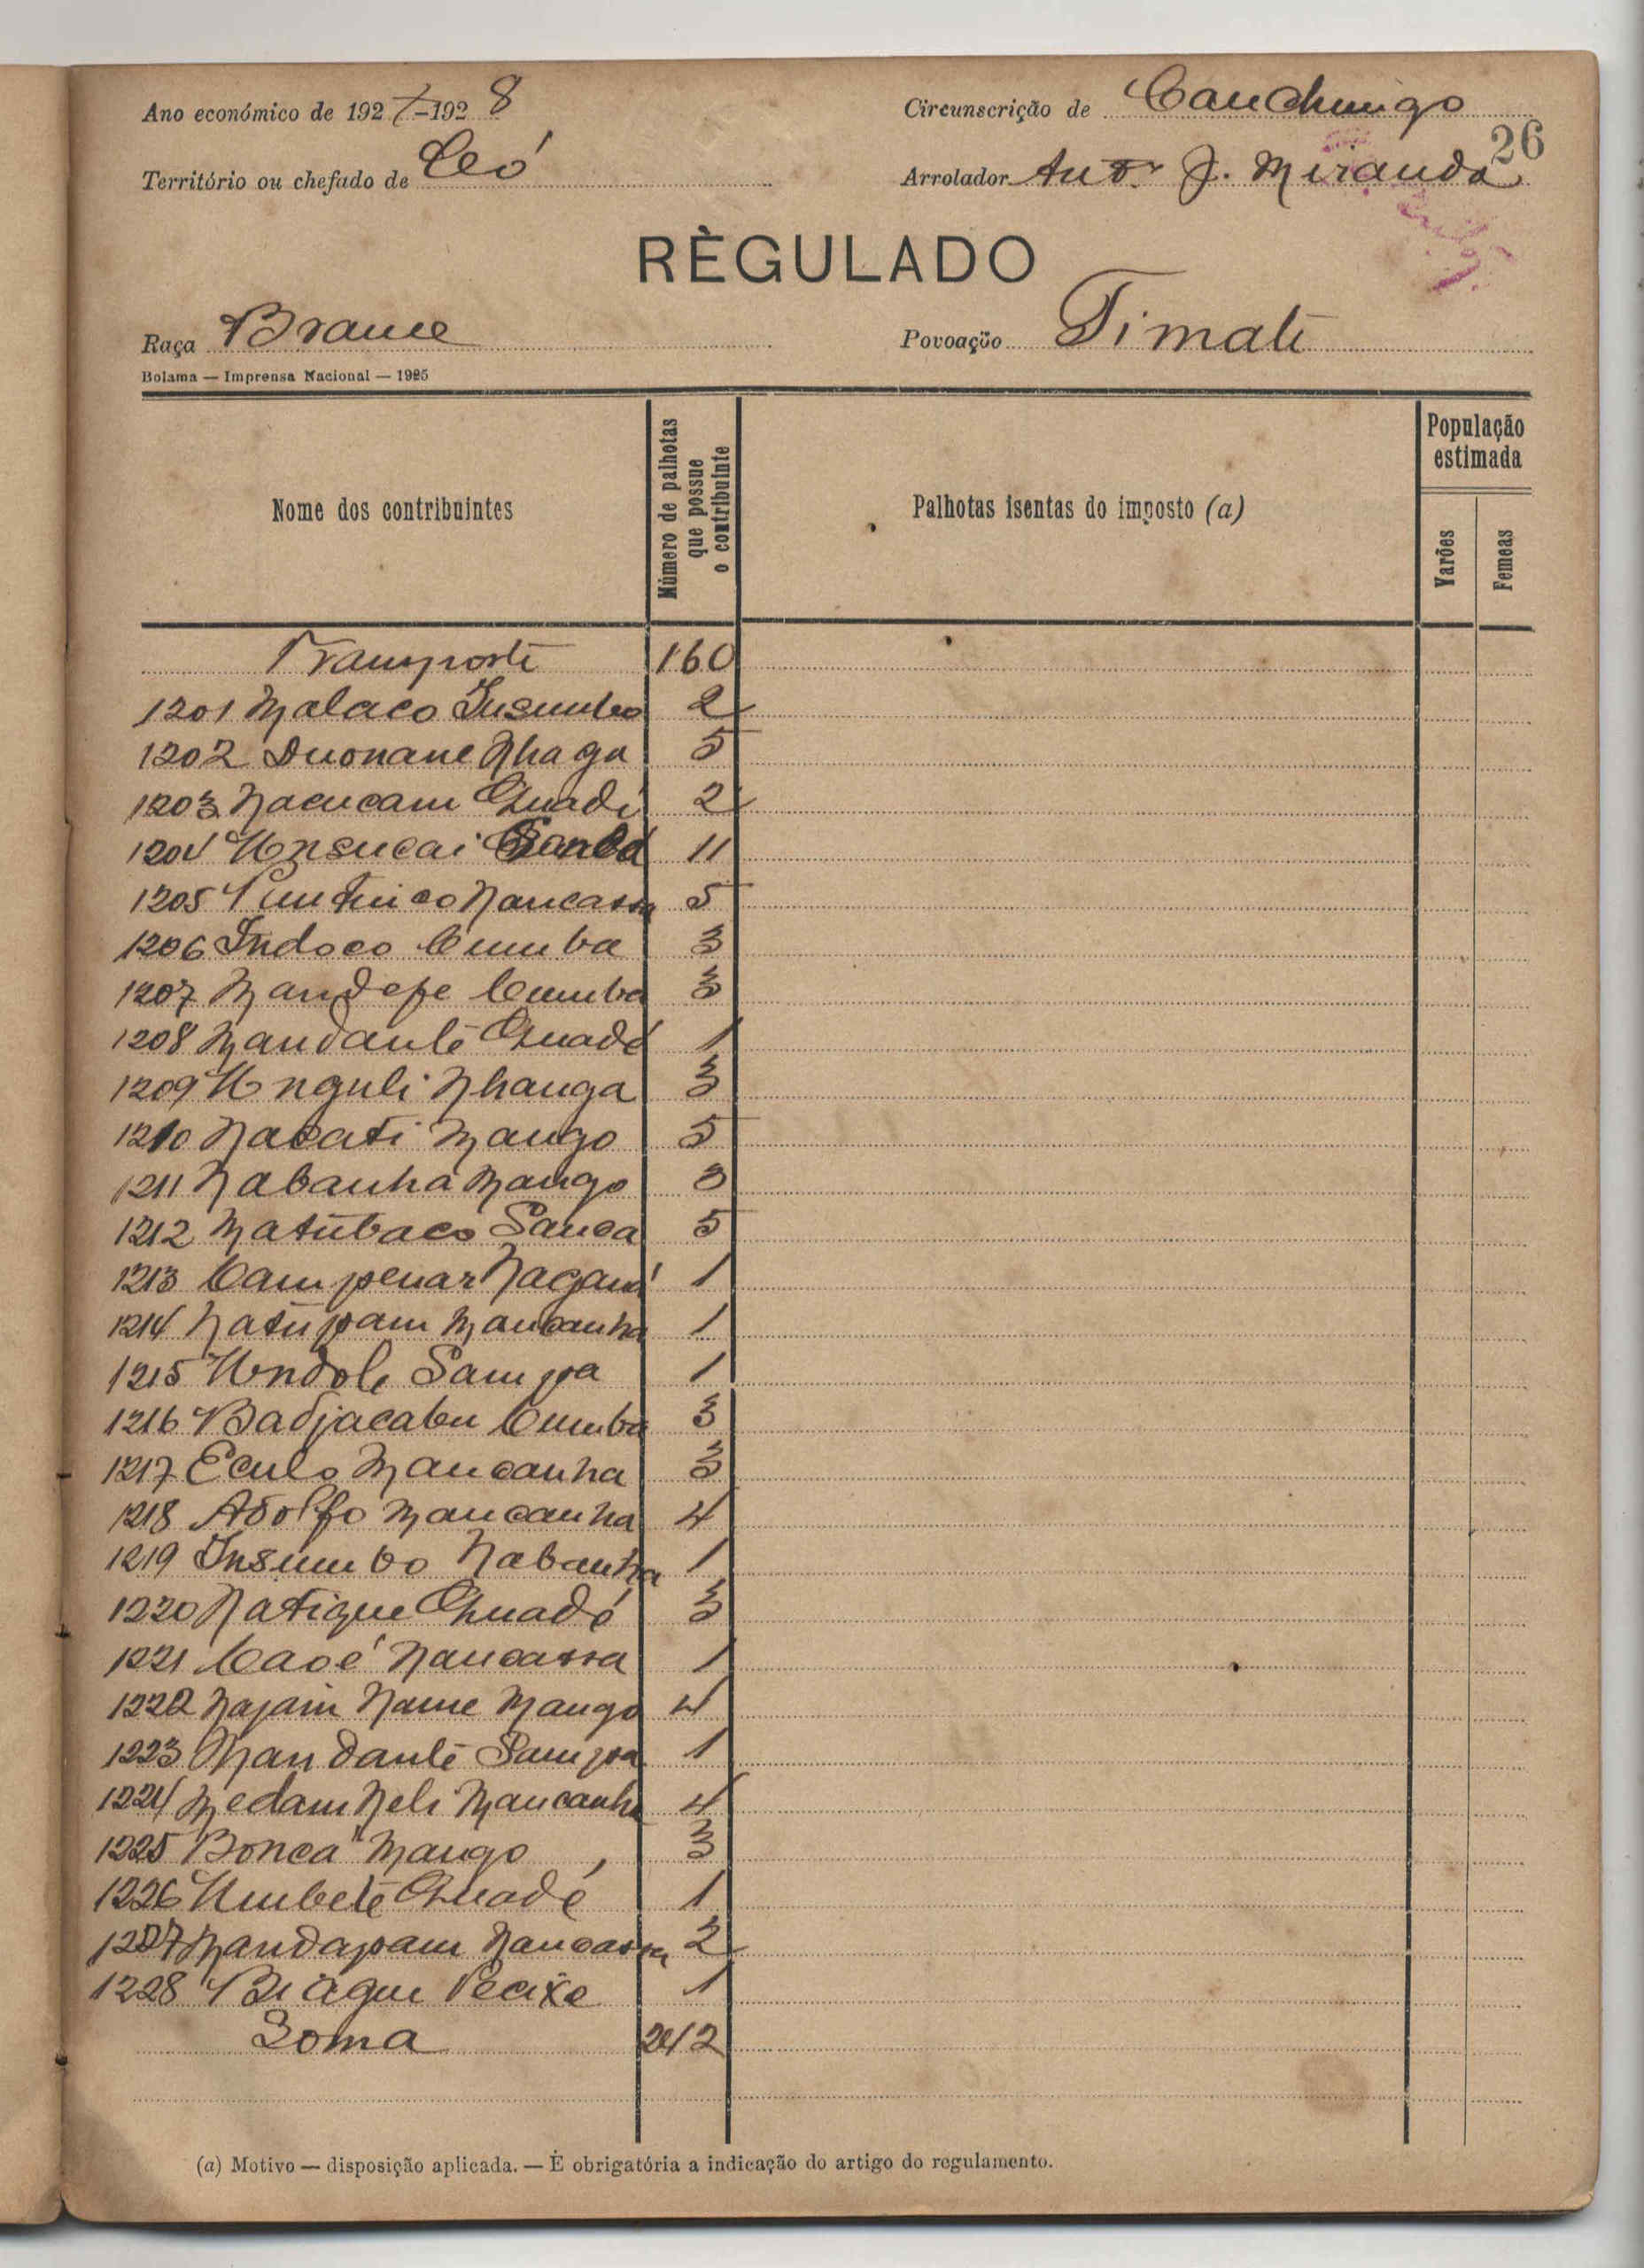 Ano económico de 1927-1928
Circunscrição de Canchungo
26
Território ou chefado de Ció
Arrolador Antº J. Miranda
RÈGULADO
Raça Brame
Povoação Timate
Bolama — Imprensa Nacional — 1925
Nome dos contribuintes
Número de palhotas que possue o contribuinte
Palhotas isentas do imposto (a)
População estimada
Varões
Femeas
Transporte 160
1201 Malaco Insumbo 2
1202 Nhaga 5
1203 Nacucam 2
1204 11
1205 Nancassa 5
1206 Indoco Cumba 3
1207 Mandefe Cumba 3
1208 Mandante 1
1209 Unguli Nhanga 3
1210 Nacati Mango 5
1211 Nabanha Mango 3
1212 Matubaco Sanca 5
1213 Campenar 1
1214 Natupam Mancanha 1
1215 Undole Sampa 1
1216 Badjacabu Cumba 3
1217 Eculo Mancanha 3
1218 Adolfo Mancanha 4
1219 Insumbo Nabanha 1
1220 Natique 3
1221 Caoé Nancassa 1
1222 Najam Name Mango 4
1223 Mandante Sampa 1
1224 Medam Neli Mancanha 4
1225 Bonca Mango 3
1226 Umbeté 1
1227 Mandapam Nancassa 2
1228 Biague Pecixe 1
Soma 242
(a) Motivo — disposição aplicada. — È obrigatória a indicação do artigo do regulamento.